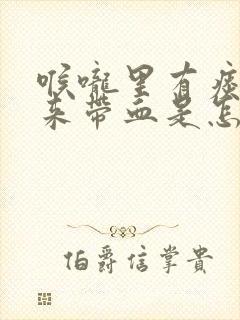 喉嚨里有痰
来带血是怎
伯爵信掌貴